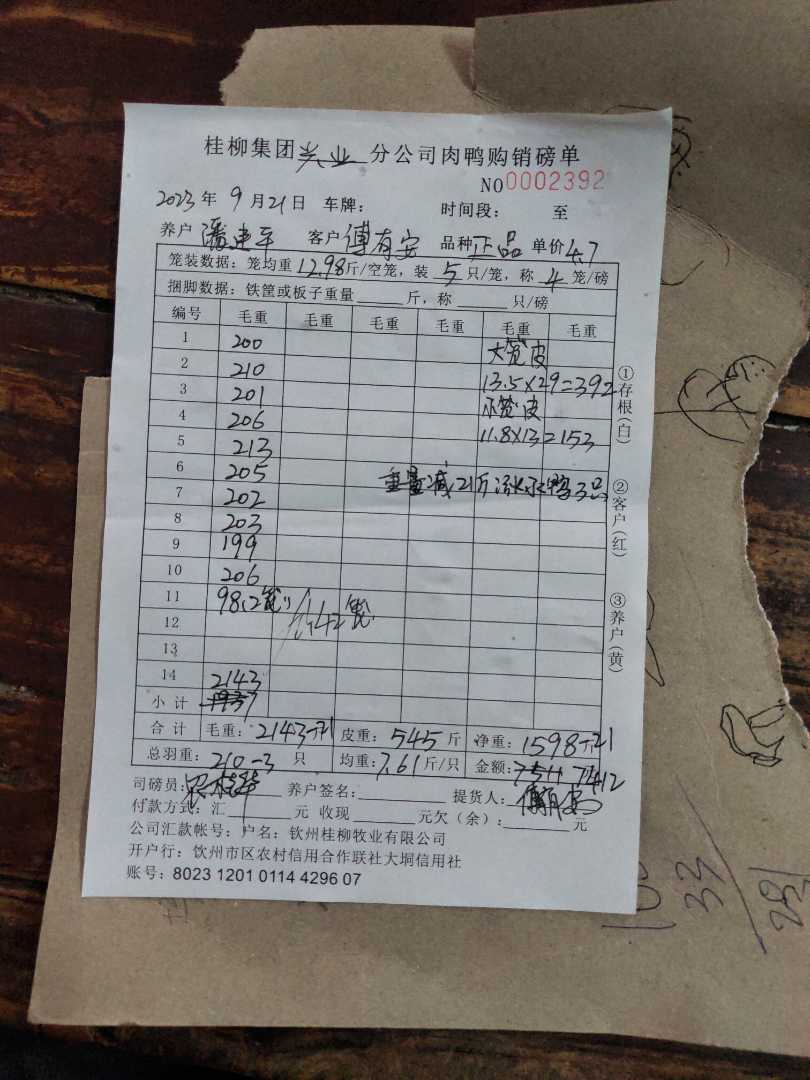 桂柳集团兴业分公司肉鸭购销磅单
NO0002392
2023年9月21日 车牌： 时间段： 至
养户潘建平 客户傅有安 品种正品 单价4.7
笼装数据：笼均重12.98斤/空笼，装5只/笼，称4笼/磅
捆脚数据：铁筐或板子重量 斤，称 只/磅
编号 毛重 毛重 毛重 毛重 毛重 毛重
1 200 大笼皮
2 210 13.5×29=392
3 201 小笼皮
4 206 11.8×13=153
5 213
6 205 重量减21斤 水鸭3只
7 202
8 203
9 199
10 206
11 98(2笼) 42笼
12
13
14 2143
小计 1937
合计 毛重：2143斤 皮重：545斤 净重：1598斤-21
总羽重：210-3只 均重：7.61斤/只 金额：7511 7412
司磅员： 养户签名： 提货人：傅有安
付款方式：汇 元 收现 元欠（余）： 元
公司汇款帐号：户名：钦州桂柳牧业有限公司
开户行：钦州市区农村信用合作联社大垌信用社
账号：8023 1201 0114 4296 07
①存根(白)
②客户(红)
③养户(黄)
32
281